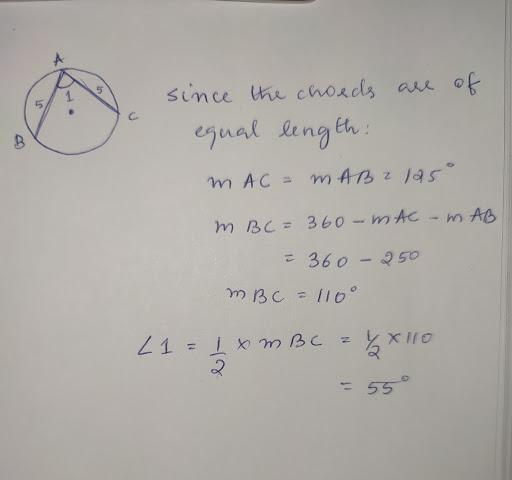 A
5
1
5
B
C
since the chords are of
equal length:
m AC = m AB = 125°
m BC = 360 - m AC - m AB
= 360 - 250
m BC = 110°
∠1 = 1/2 × m BC = 1/2 × 110
= 55°